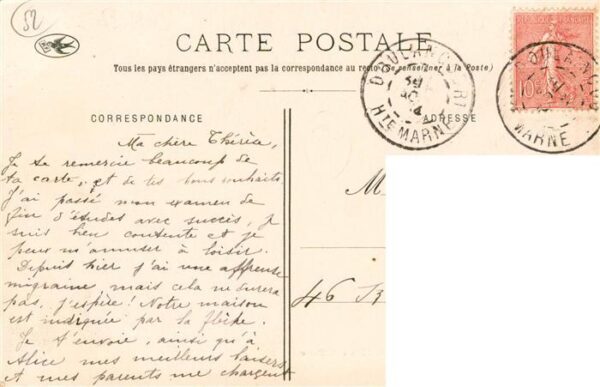 52
CARTE POSTALE
Tous les pays étrangers n'acceptent pas la correspondance au recto (Se renseigner à la Poste)
DOULEVANT
HTE MARNE
10
MARNE
CORRESPONDANCE
ADRESSE
Ma chère Thérèsa,
Je te remercie beaucoup de
ta carte, et de tes bons souhaits.
J'ai passé mon examen de
fin d'études avec succès, je
suis bien contente et je
peux m'amuser à loisir.
Depuis hier j'ai une affreuse
migraine, mais cela ne durera
pas, j'espère! Notre maison
est indiquée par la flèche.
Je t'envoie, ainsi qu'à
Alice mes meilleurs baisers
et mes parents me chargent
M
46 R